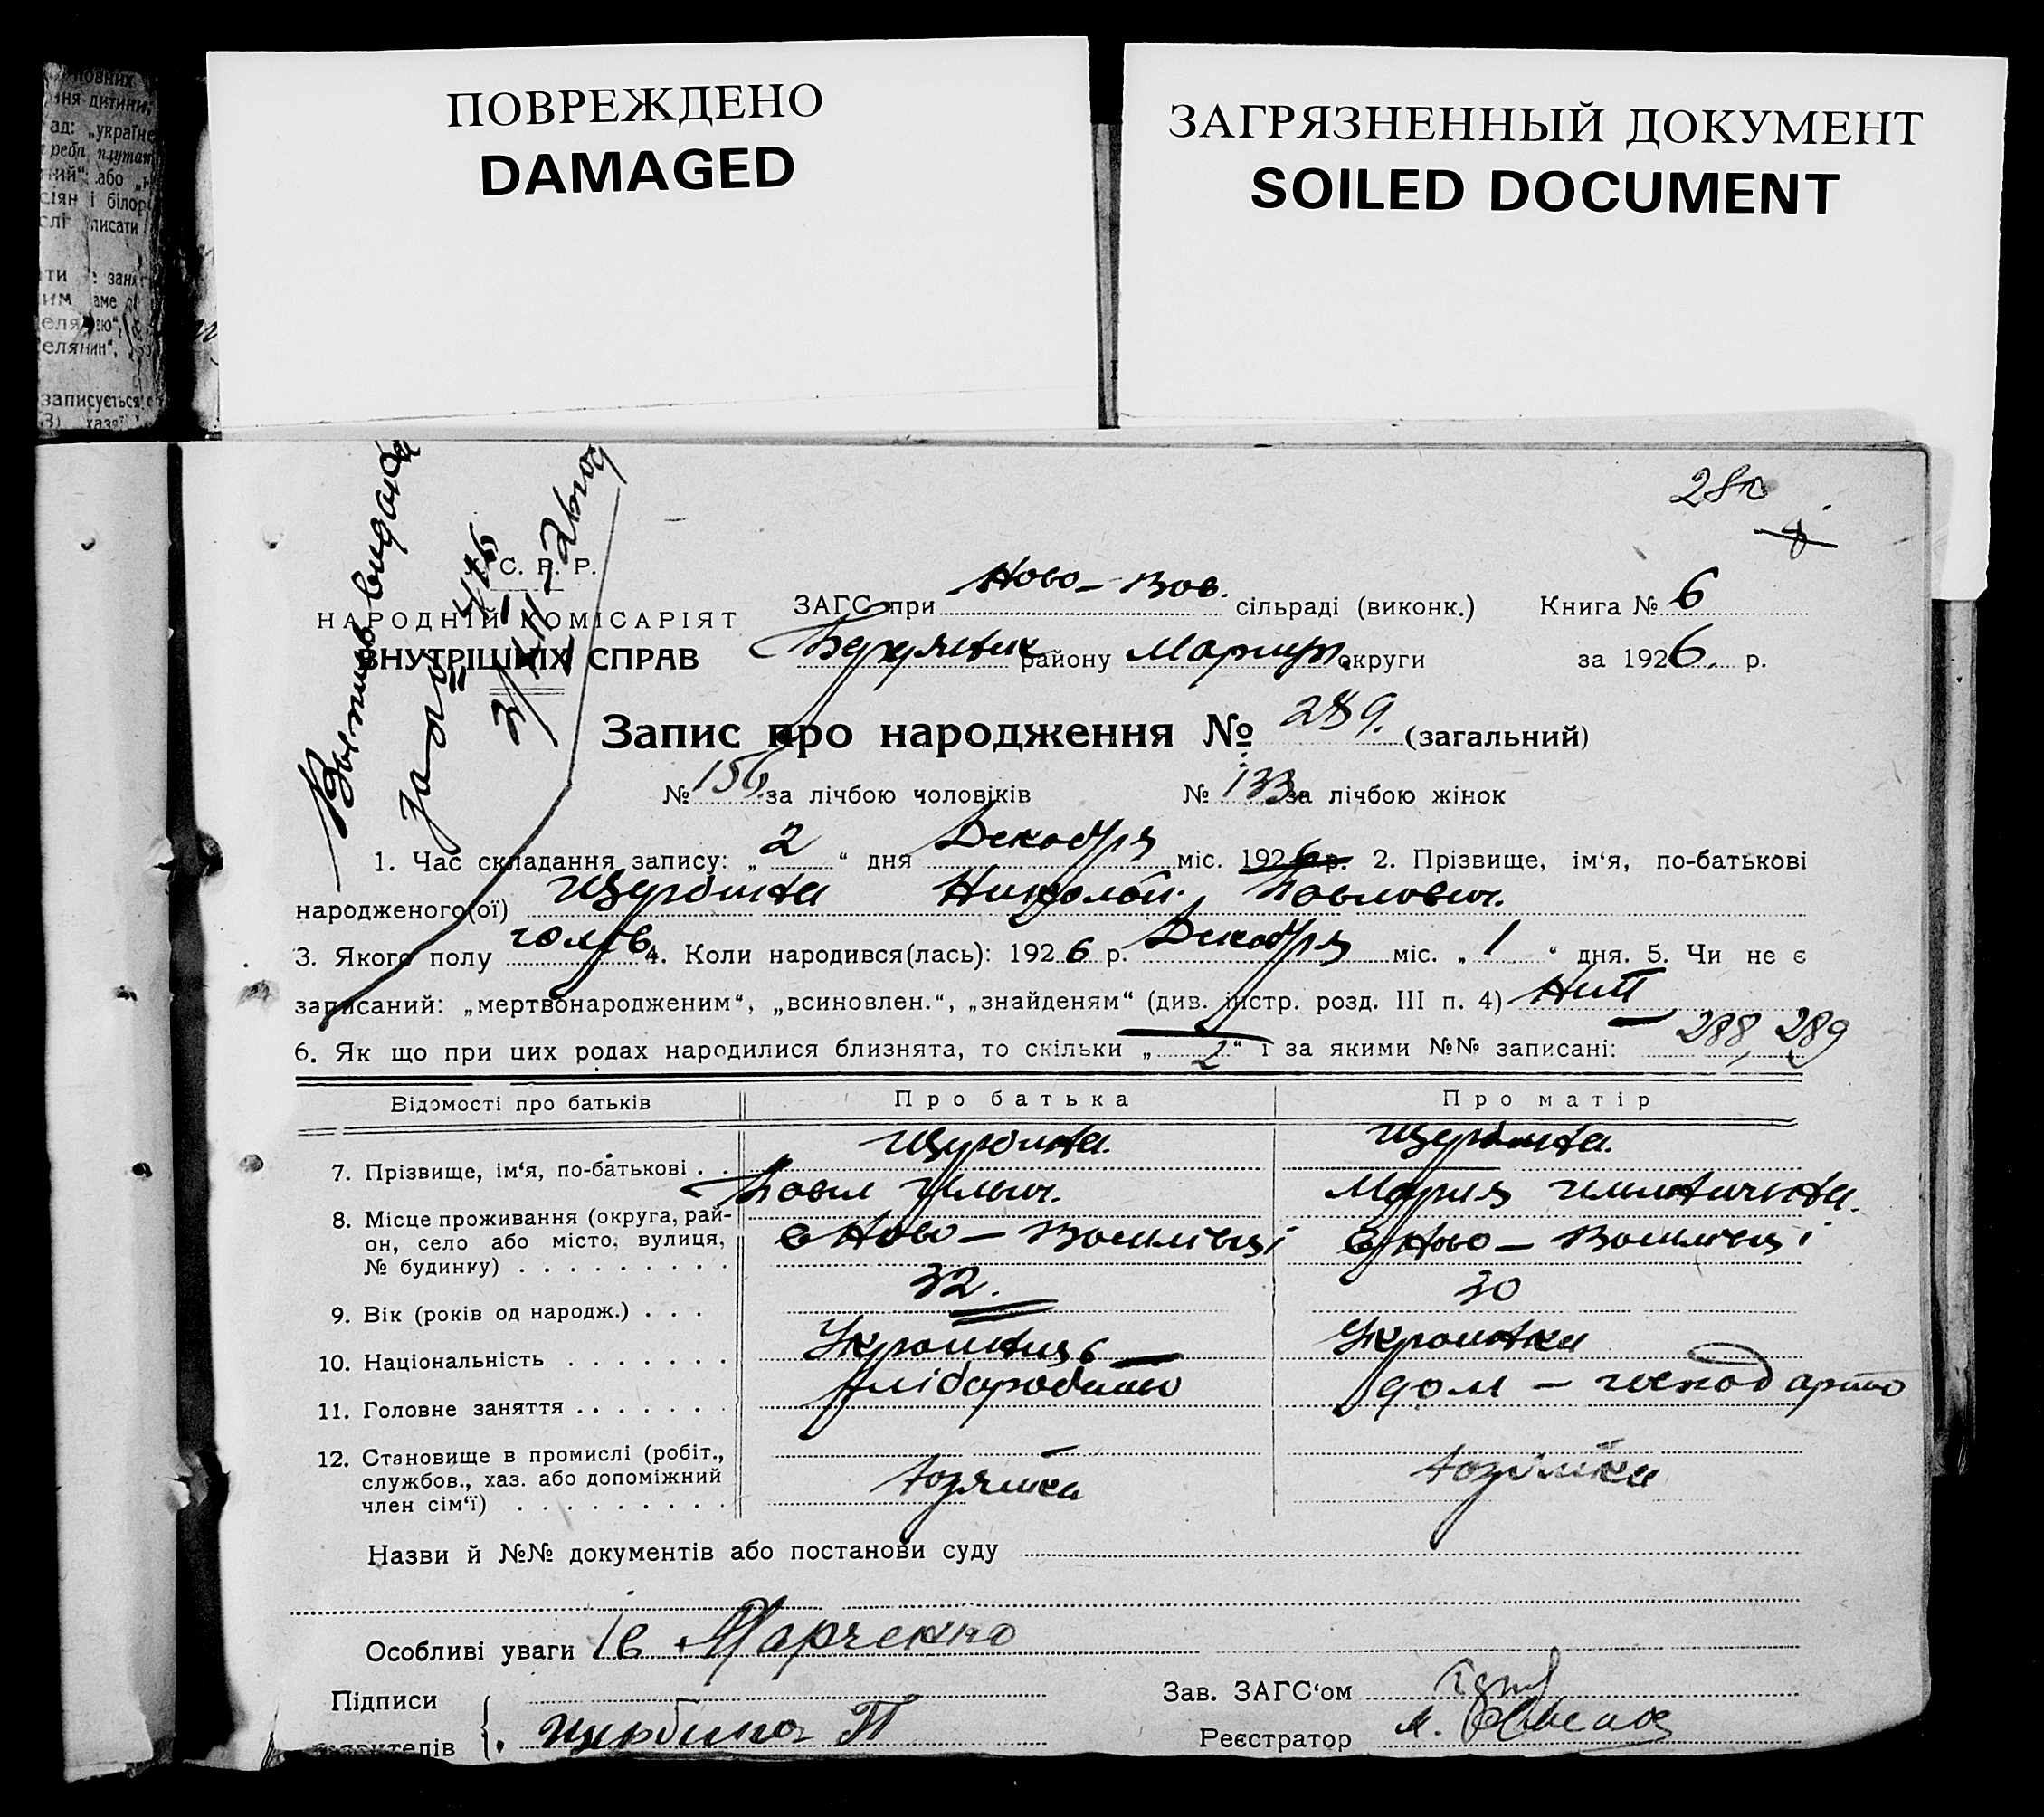 ПОВРЕЖДЕНО
DAMAGED
ЗАГРЯЗНЕННЫЙ ДОКУМЕНТ
SOILED DOCUMENT
ня дитини,
ад: „україне
або
і білор
писати
записується
С. Р. Р.
НАРОДНІЙ КОМІСАРІЯТ
ВНУТРІШНІХ СПРАВ
ЗАГС при Ново-Вас. сільраді (виконк.) Книга № 6
Бердянськ району Маріуп. округи за 1926. р.
Запис про народження № 289. (загальний)
№ 156 за лічбою чоловіків № 133 за лічбою жінок
1. Час складання запису: „2“ дня Декабря міс. 1926 р. 2. Прізвище, ім‘я, по-батькові
народженого(ої) Щербина Николай Павлович.
3. Якого полу чолов. 4. Коли народився(лась): 1926 р. Декабря міс. „1“ дня. 5. Чи не є
записаний: „мертвонародженим“, „всиновлен.“, „знайденям“ (див. інстр. розд. III п. 4) Нит
6. Як що при цих родах народилися близнята, то скільки „2“ і за якими №№ записані: 288, 289
Відомості про батьків Про батька Про матір
7. Прізвище, ім‘я, по-батькові . . Щербина. Щербина.
Павел Ильич. Мария
8. Місце проживання (округа, рай-
он, село або місто, вулиця,
№ будинку) . . . . . . . . . с Ново-Василівці с Ново-Василівці
9. Вік (років од народж.) . . . 32. 30
10. Національність . . . . . . . Українець Українка
11. Головне заняття . . . . . . . хліборобство дом-господарство
12. Становище в промислі (робіт.,
службов., хаз. або допоміжний
член сім‘ї) . . . . . . . . . хозяїка хозяїка
Назви й №№ документів або постанови суду
Особливі уваги Марченко
Підписи
Зав. ЗАГС‘ом
Щербина П
Реєстратор